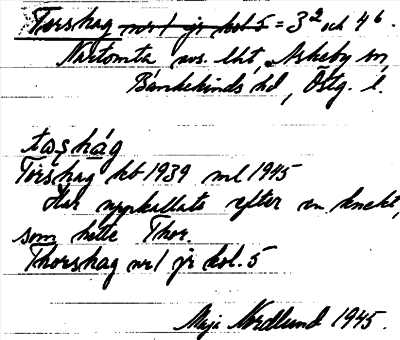 Torshag nr 1 jr kol 5 = 3² och 4⁶.
Nartomta svs. lht, Askeby sn,
Bankekinds hd, Östg. l.
tọṣhág
Torshag kb 1939 ml 1945
Har uppkallats efter en knekt,
som hette Thor.
Thorshag nr 1 jr kol. 5
Maj Nordlund 1945.